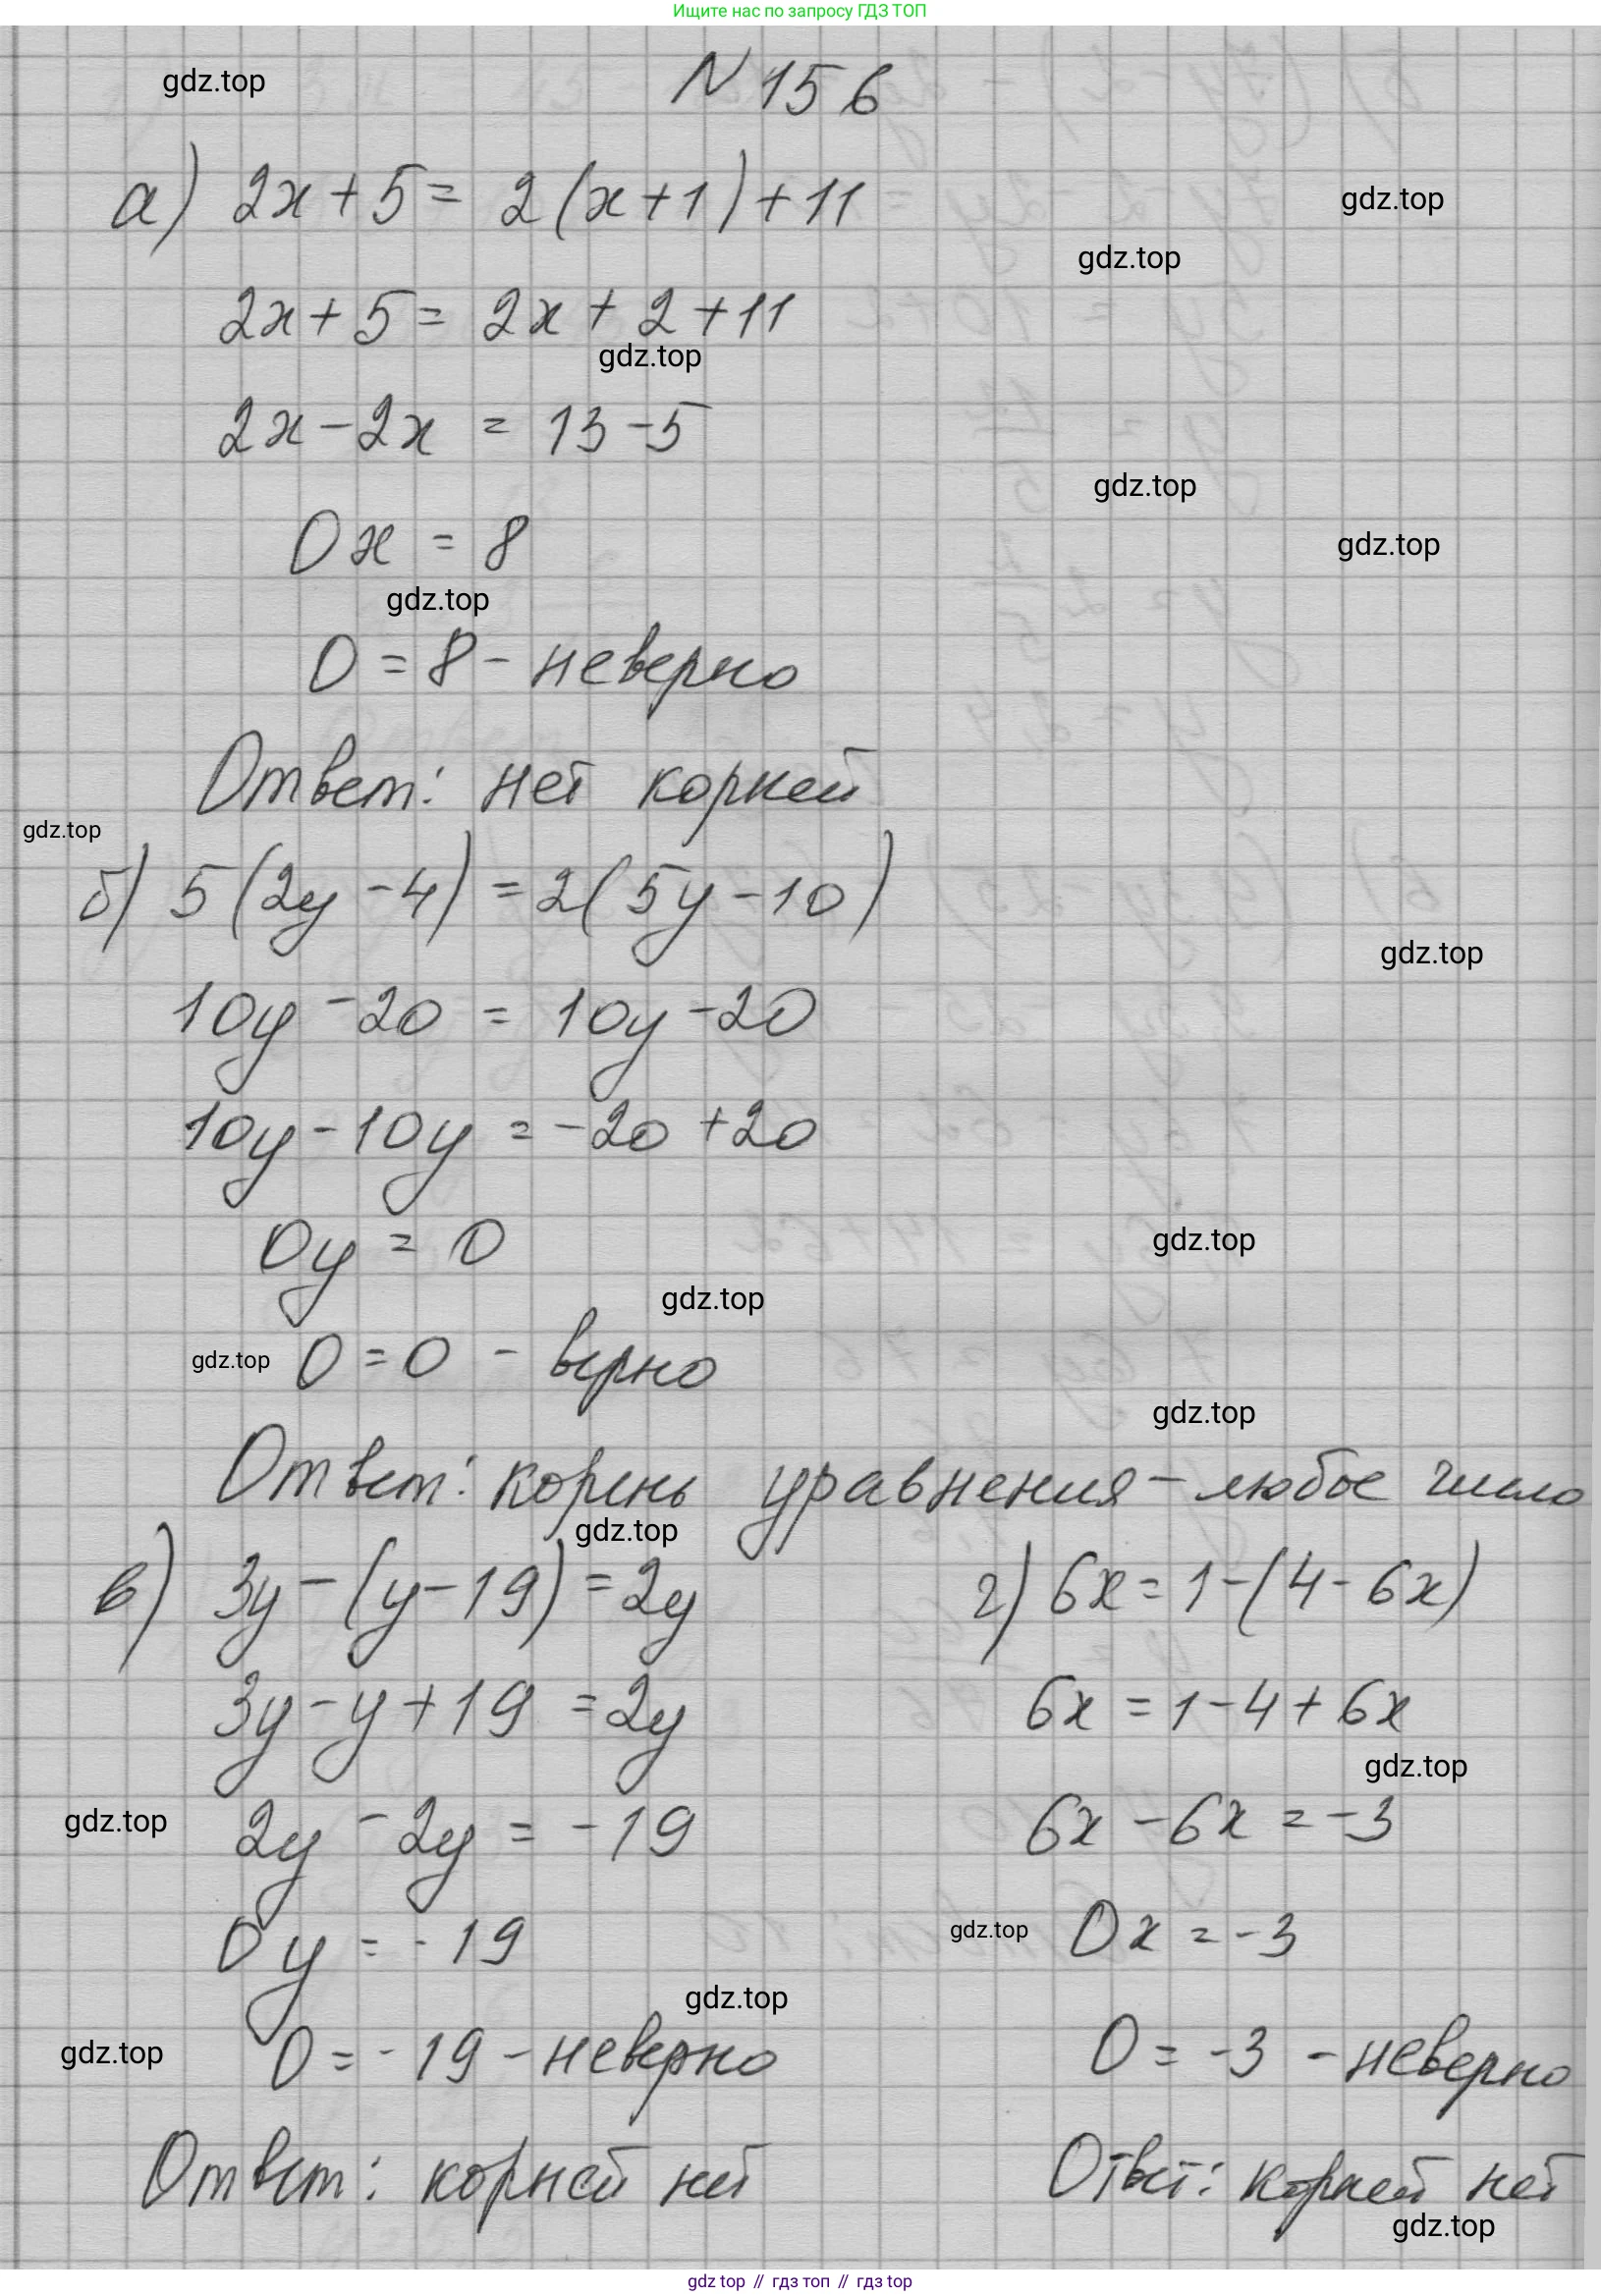 Ищите нас по запросу ГДЗ ТОП
gdz.top
N 156
а) 2x + 5 = 2(x+1)+11
gdz.top
gdz.top
2x + 5 = 2x + 2 + 11
gdz.top
2x - 2x = 13 - 5
gdz.top
0x = 8
gdz.top
gdz.top
0 = 8 - неверно
Ответ: нет корней
gdz.top
б) 5(2y - 4) = 2(5y - 10)
gdz.top
10y - 20 = 10y - 20
10y - 10y = -20 + 20
0y = 0
gdz.top
gdz.top
gdz.top
0 = 0 - верно
gdz.top
Ответ: корень уравнения - любое число
gdz.top
в) 3y - (y - 19) = 2y
3y - y + 19 = 2y
gdz.top
2y - 2y = -19
0y = -19
gdz.top
gdz.top
0 = -19 - неверно
Ответ: корней нет
г) 6x = 1 - (4 - 6x)
6x = 1 - 4 + 6x
gdz.top
6x - 6x = -3
gdz.top
0x = -3
0 = -3 - неверно
Ответ: корней нет
gdz.top
gdz top // гдз топ // гдз top